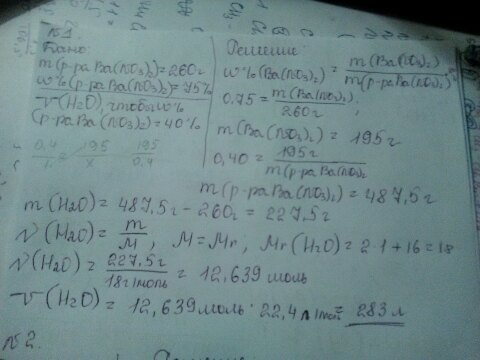 №1.
Дано:
m(р-ра Ba(NO3)2)=260г
w%(р-ра Ba(NO3)2)=75%
V(H2O), чтобы w%
(р-ра Ba(NO3)2)=40%
0,4 195 195
1 x 0,4
Решение:
w%(Ba(NO3)2) = m(Ba(NO3)2) / m(р-ра Ba(NO3)2)
0,75 = m(Ba(NO3)2) / 260г
m(Ba(NO3)2) = 195г
0,40 = 195г / m(р-ра Ba(NO3)2
m(р-ра Ba(NO3)2) = 487,5г
m(H2O) = 487,5г - 260г = 227,5г
ν(H2O) = m / M, M=Mr, Mr(H2O) = 2·1+16=18
ν(H2O) = 227,5г / 18г/моль = 12,639 моль
V(H2O) = 12,639 моль · 22,4 л/моль = 283 л
№2.